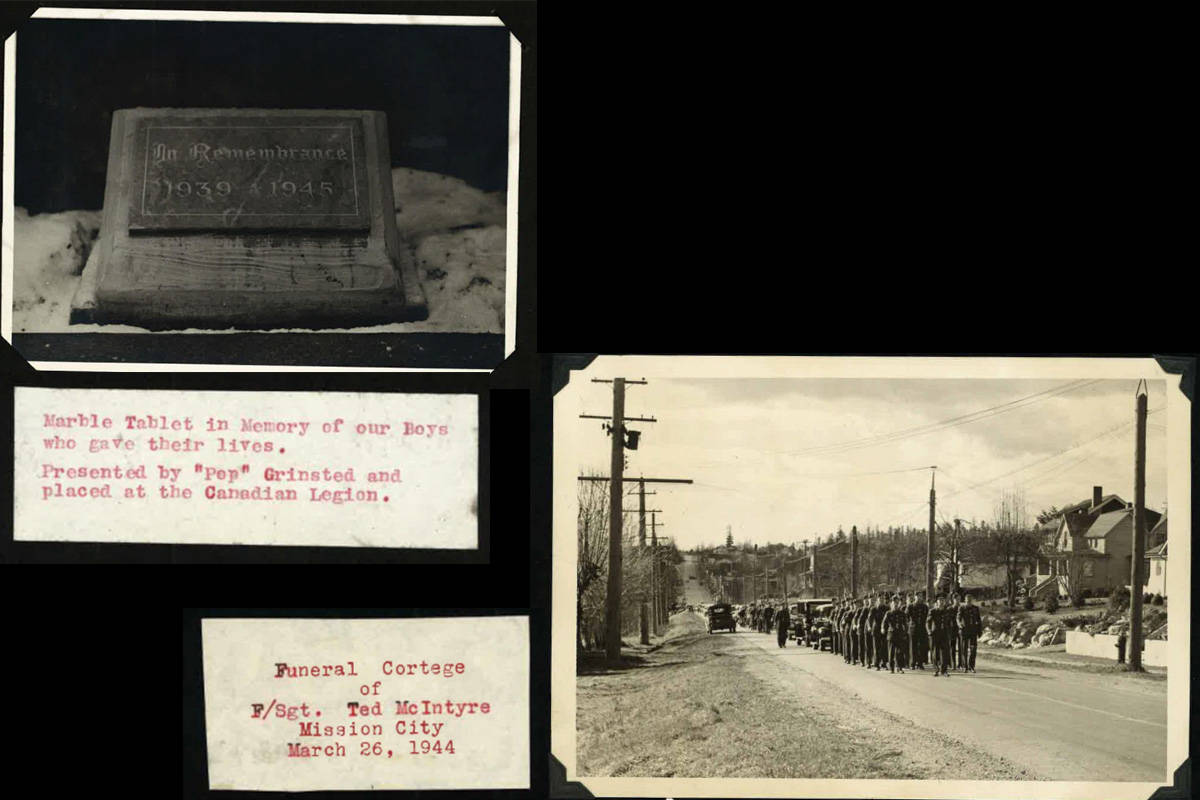 In Remembrance
1939 1945
Marble Tablet in Memory of our Boys
who gave their lives.
Presented by "Pop" Grinsted and
placed at the Canadian Legion.
Funeral Cortege
of
F/Sgt. Ted McIntyre
Mission City
March 26, 1944